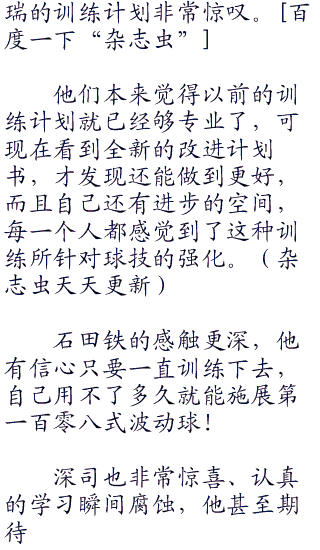 瑞的训练计划非常惊叹。[百
度一下“杂志虫”]
他们本来觉得以前的训
练计划就已经够专业了，可
现在看到全新的改进计划
书，才发现还能做到更好，
而且自己还有进步的空间，
每一个人都感觉到了这种训
练所针对球技的强化。（杂
志虫天天更新）
石田铁的感触更深，他
有信心只要一直训练下去，
自己用不了多久就能施展第
一百零八式波动球！
深司也非常惊喜、认真
的学习瞬间腐蚀，他甚至期
待